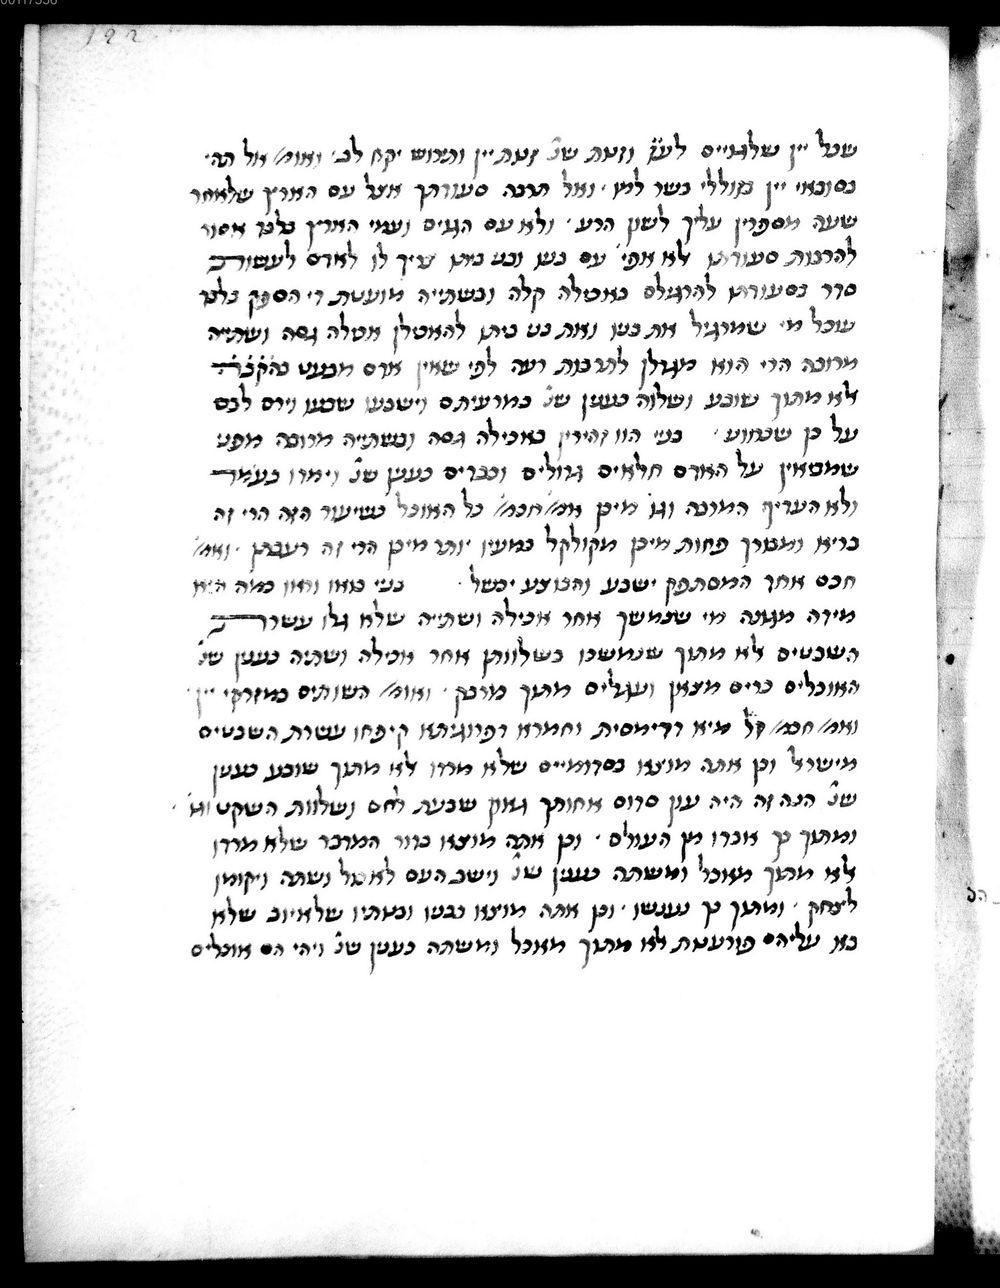 122
שכל יין שלגויים לע״ז וזנות שנ׳ זנות יין ותירוש יקח לב׳ ואומ׳ אל תהי
בסובאי יין בזוללי בשר למו׳ ואל תרבה סעודתך אצל עם הארץ שלאחר
שעה מספרין עליך לשון הרע׳ ולא עם הגוים ועמי הארץ בלבד אסור
להרבות סעודתו אלא אפי׳ עם בנו ובני ביתו צריך לו לאדם לעשות
סדר בסעודתו להרגילם באכילה קלה ובשתייה מועטת די הספק בלבד
שכל מי שמרגיל את בנו ואת בני ביתו להאכילן אכילה גסה ושתייה
מרובה הרי הוא מגדלן לתרבות רעה לפי שאין אדם מבעט בהק׳ב׳ה׳
אלא מתוך שובע ושלוה כענין שנ׳ כמרעיתם וישבעו שבעו וירם לבם
על כן שכחוני׳ בני הוו זהירין באכילה גסה ובשתייה מרובה מפני
שמביאין על האדם חלאים גדולים וכבדים כענין שנ׳ וימדו בעמר
ולא העדיף המרבה וגו׳ מיכן אמ׳ חכמ׳ כל האוכל כשיעור הזה הרי זה
בריא ומבורך פחות מיכן מקולקל במעיו יותר מיכן הרי זה רעבתן׳ ואמ׳
חכם אחד המסתפק ישבע והבוצע יכשל׳ בני בואו וראו כמה היא
מידה מגונה מי שנמשך אחר אכילה ושתייה שלא גלו עשרת
השבטים אלא מתוך שנמשכו בשלוותן אחר אכילה ושתיה כענין שנ׳
האוכלים כרים מצאן ועגלים מתוך מרבק׳ ואומ׳ השותים במזרקי יין׳
ואמ׳ חכמ׳ ז״ל מיא דדימסית וחמרא דפרוגיתא קיפחו עשרת השבטים
מישראל וכן אתה מוצא בסדומיים שלא מרדו אלא מתוך שובע כענין
שנ׳ הנה זה היה עון סדום אחותך גאון שבעת לחם ושלות השקט וגו׳
ומתוך כך אבדו מן העולם׳ וכן אתה מוצא בדור המדבר שלא מרדו
אלא מתוך מאכל ומשתה כענין שנ׳ וישב העם לאכול ושתה ויקומו
לצחק׳ ומתוך כך נענשו׳ וכן אתה מוצא בבניו ובנותיו שלאיוב שלא
בא עליהם פורענות אלא מתוך מאכל ומשתה כענין שנ׳ ויהי הם אוכלים